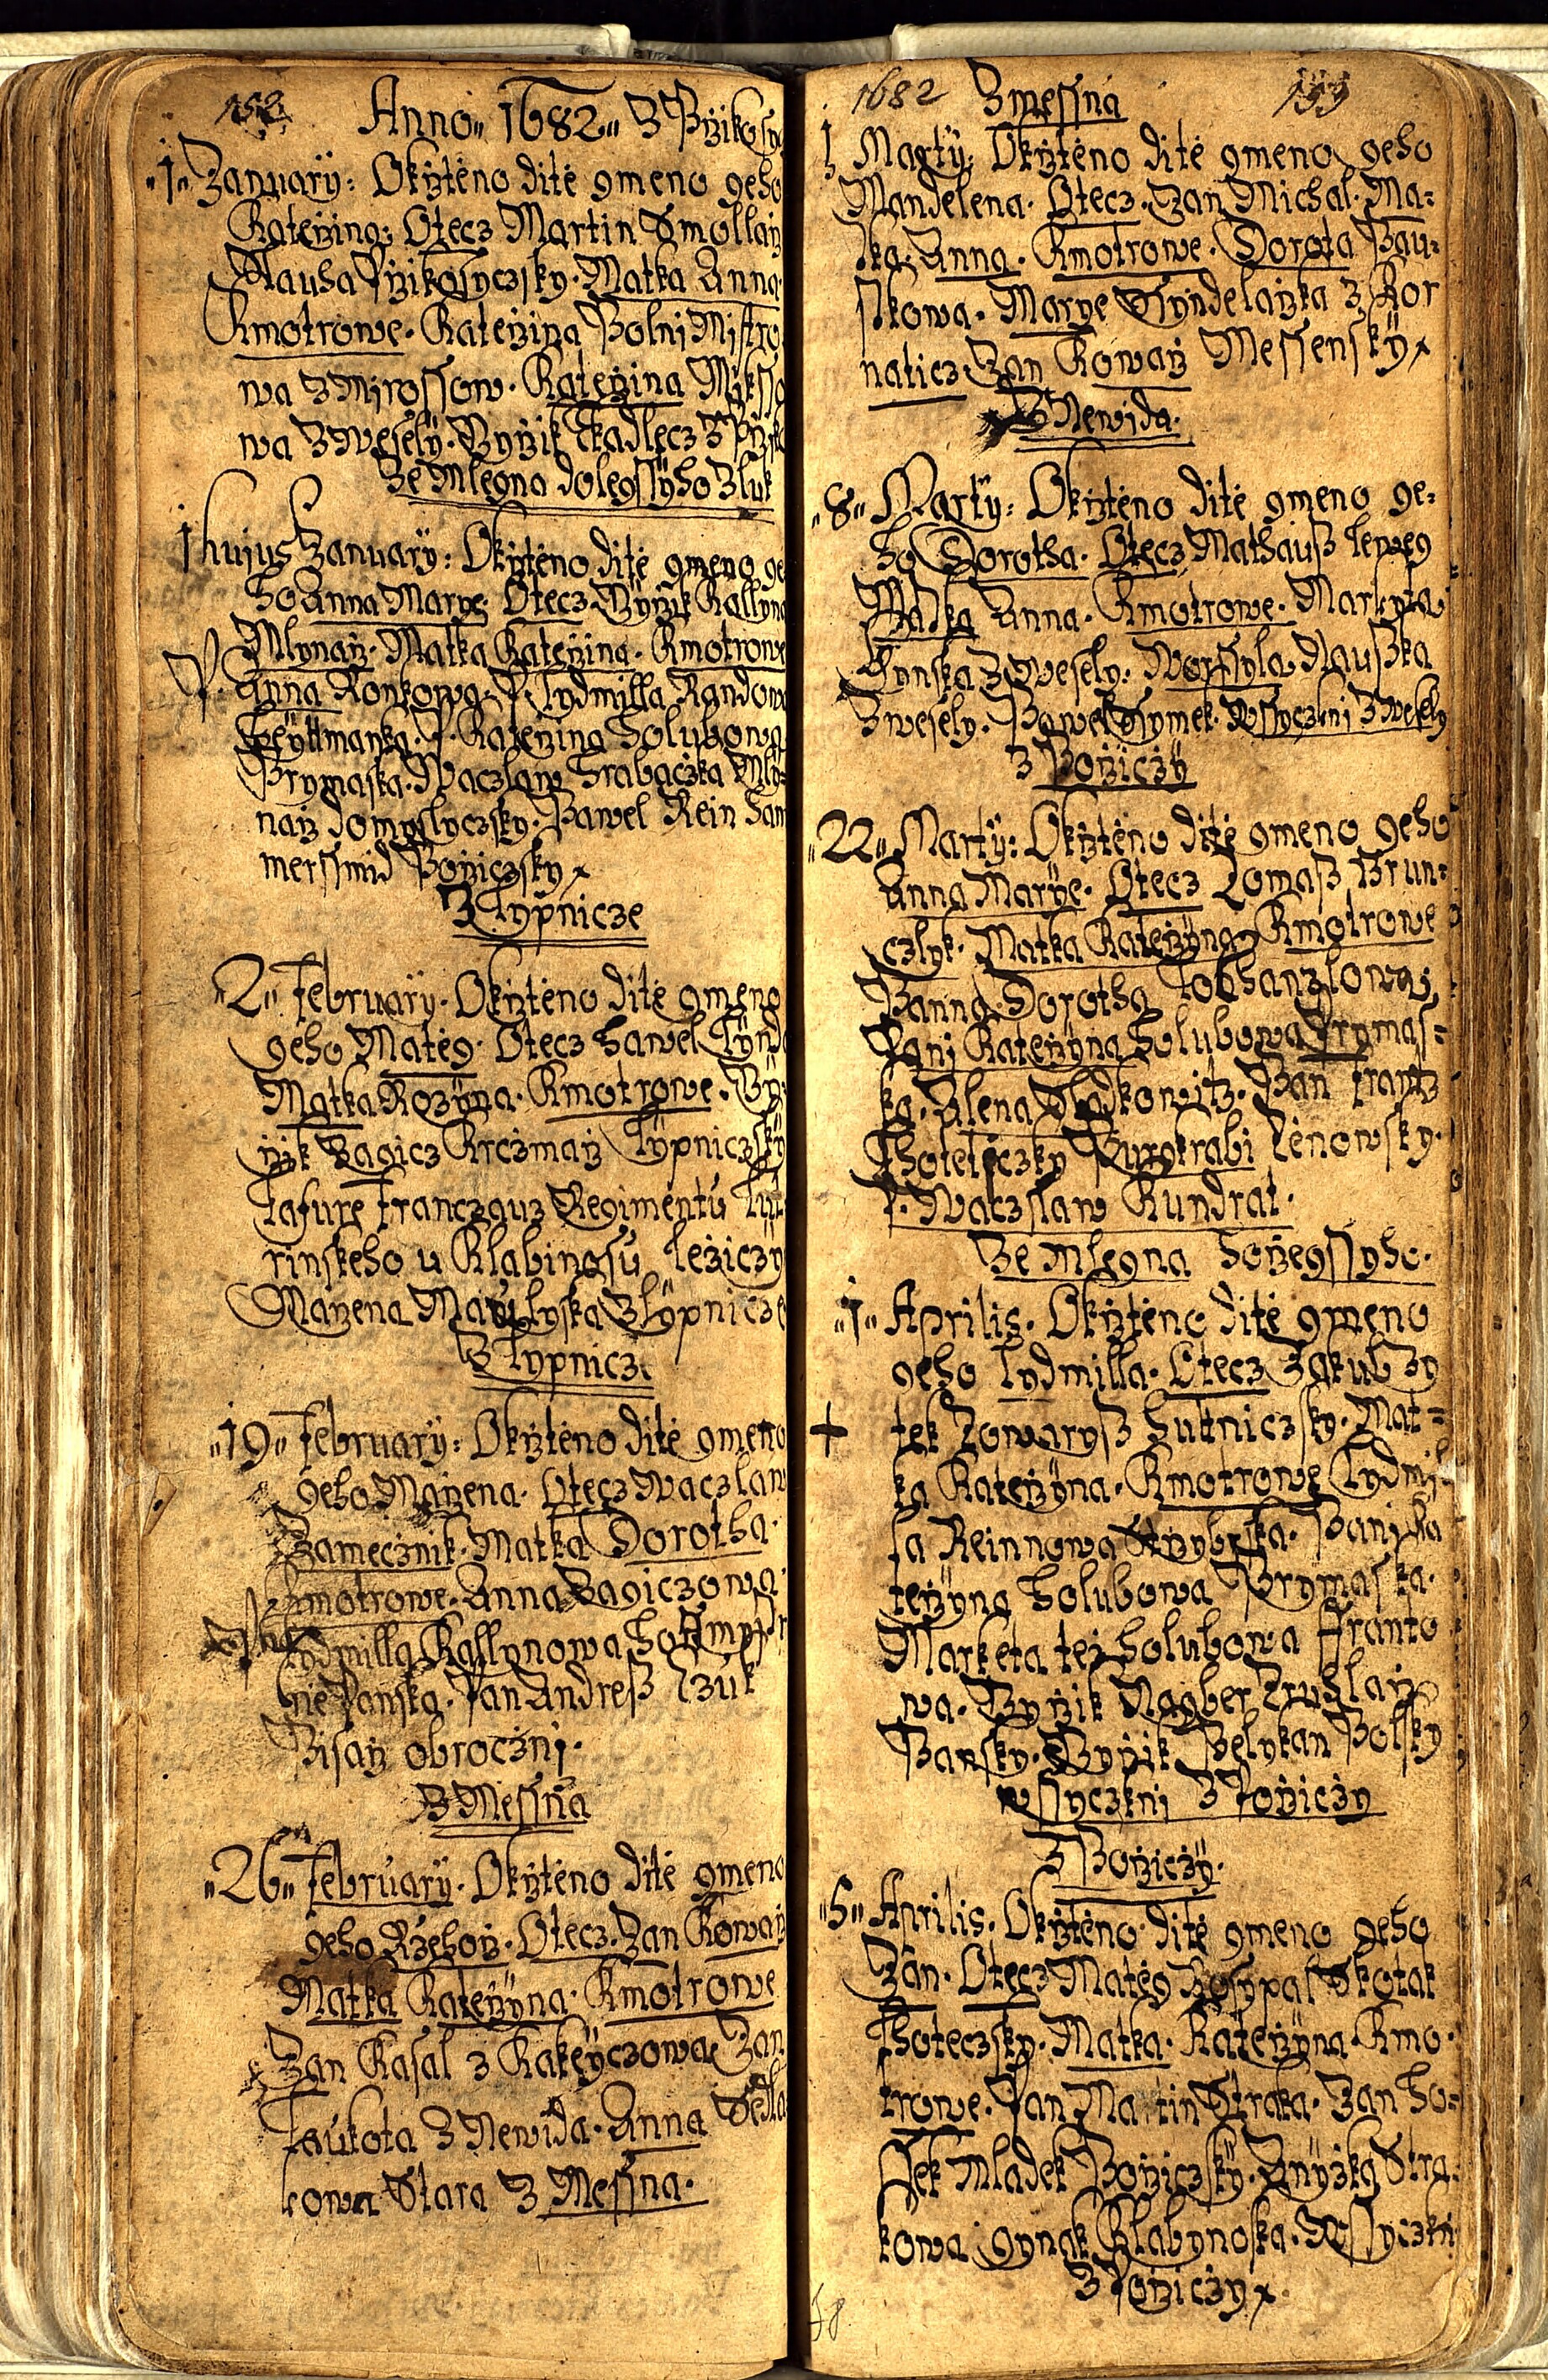 152
Anno 1682 Z Pržikosy
1 January: Okržtěno ditě gmeno geho
Kateržina: Otecz Martin Smollarž
Slauha Pržikosyczsky. Matka Anna
Kmotrowe. Kateržina Polni Mistro
wa Z Mirossow. Kateržina Miksso
wa Z Wesely. Gyržik Tkadlecz Z
Ze Mlegna dolegssyho Z luk
1 hujus January: Okržtěno ditě gmeno ge
ho Anna Marye Otecz Gyržik Kallyna
Mlynarž. Matka Kateržina. Kmotrowe
Anna Ronkowa. P. Lydmilla Randow
Heytmanka. P. Kateržina Holubowa
Prymaska. Waczlaw Hrabaczka Mly=
narž domyslyczsky. Pawel Rein Ham
merssmid Pořziczsky
Z Lypnicze
2 February. Okržtěno ditě gmeno
geho Matěg. Otecz Hawel Lynd
Matka Rozyna. Kmotrowe. Gy=
ržik Zagicz Krczmarž Lypniczsky
Lafure Franczauz Regimentu Lut
rinskeho u Klabingsu ležiczy
Maržena Z Lypnicze
Z Lypnicz
19 February: Okržtěno ditě gmeno
geho Maržena. Otecz Waczlaw
Zamecznik. Matka Dorotha.
Kmotrowe. Anna Zagiczowa
Lydmilla Kallynowa
Panska. Pan Andreß Czuk
Pisarž obroczni.
Z Messna
26 February. Okržtěno ditě gmeno
geho Ržehorž. Otecz. Jan Kowarž
Matka Kateržyna. Kmotrowe
Jan Kasal z Kakeyczowa Jan
Laukota Z Newida. Anna Sedla
kowa Stara Z Messna.
1682 Z messna 153
1 Marty: Okržtěno ditě gmeno geho
Mandelena. Otecz. Jan Michal. Ma=
tka. Anna. Kmotrowe. Dorota Pau=
sskowa. Marye Ssyndelaržka z Kor
naticz. Jan Kowarž Messensky
Z Newida.
8 Marty: Okržtěno ditě gmeno ge=
ho Dorotha. Otecz Mathauß Lewey
Matka Anna. Kmotrowe. Markyta
Z Wesely. Worssyla Slaußka
Z wesely. Pawel Ssymek. Wssyczkni Z Wesely
Z Poržiczy
22 Marty: Okržtěno ditě gmeno geho
Anna Marye. Otecz Tomaß Brun=
czlyk. Matka Kateržyna. Kmotrowe
Panna Dorotha Lobhanzlowa
Pani Kateržyna Holubowa Prymas=
ka. Alena Sladkowitz. Pan Frantz
Choteticzky Purgkrabi Lěnowsky.
P. Waczslaw Kundrat.
Ze Mlegna horžegssyho.
1 Aprilis. Okržtěno ditě gmeno
geho Lydmilla. Otecz Jakub Zy
tek Towaryß hutniczsky. Mat=
ka Kateržyna. Kmotrowe Lydmi
la Reinnowa. Pani Ka
teržyna Holubowa Prymaska.
Marketa též Holubowa Franto
wa. Gyržik Nagber Truhlarž
Pansky. Gyržik Pelykan Polsky
wssyczkni Z Poržiczy
Z Poržiczy.
5 Aprilis. Okržtěno ditě gmeno geho
Jan. Otecz Matěg Posypal Skotak
Choteczsky. Matka. Kateržyna. Kmo
trowe. Pan Martin Straka. Jan Ho=
ssek Mladek Poržiczsky. Anyžka Stra
kowa gynak Klabynoska. Wssyczkni
Z Poržiczy